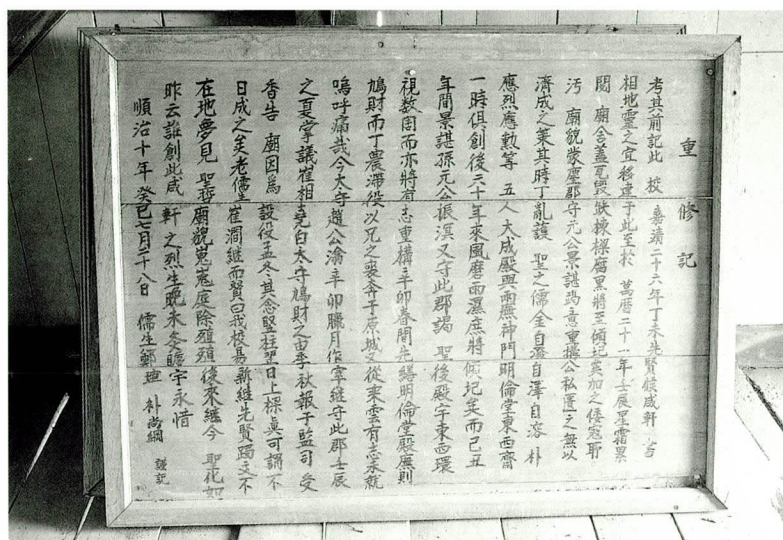 重修記
考其前記此 校 嘉靖二十六年丁未先賢鎮咸軒 占
相地靈之宜移建于此至於 萬曆二十一年壬辰星霜累
閱 廟舍蓋瓦毀缺棟樑腐黑將至傾圮莫加之倭寇
汚 廟貌蒙塵郡守元公景諶 意重 公私 之無以
濟成之策其時丁亂護 聖之儒金自 自澤自溶 朴
應烈應勳等 五人 大成殿與兩廡神門明倫堂東西齋
一時俱創後六十年來風磨雨濕庶將傾圮矣而己丑
年間景諶孫元公振溟又守此郡謁 聖後殿宇東西環
視數周而亦將有志重構辛卯春間先繕明倫堂殿廡則
鳩財而丁農滯役以兄之喪奔于原城 從來雲有志未就
嗚呼痛哉今太守趙公 辛卯臘月作宰繼守此郡壬辰
之夏掌議崔相堯白太守鳩財之由季秋報于監司 受
香告 廟因爲 設役孟冬其念竪柱翌日上樑眞可謂不
日成之矣老儒生崔澗繼而賢曰我校易新繼先賢躅文不
在地夢見 聖哲廟貌嵬嵬庭除殖殖後來繼今 聖化如
昨云誰創此咸 軒之烈生晩未參瞻宇永惜
順治十年 癸巳七月二十八日 儒生鄭 朴尚絅 謹記